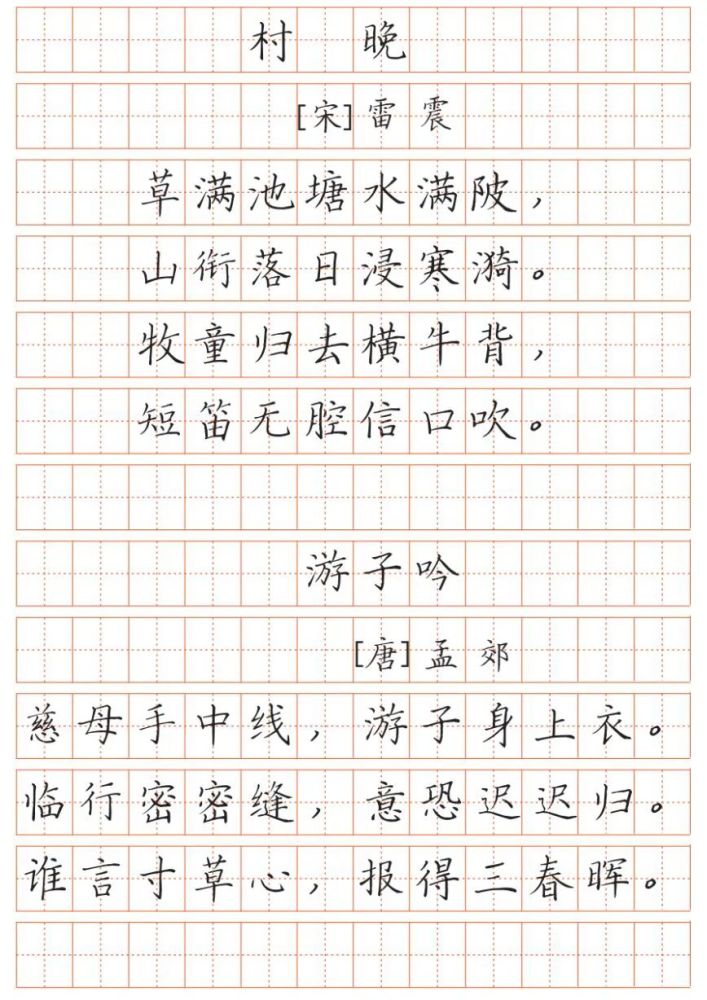 村 晚
[宋]雷震
草满池塘水满陂,
山衔落日浸寒漪。
牧童归去横牛背,
短笛无腔信口吹。
游子吟
[唐]孟郊
慈母手中线,游子身上衣。
临行密密缝,意恐迟迟归。
谁言寸草心,报得三春晖。